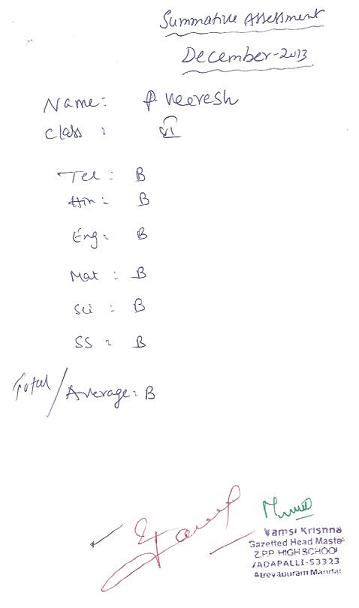 Summative Assessment
December-2013
Name: P Veeresh
Class : VI
Tel : B
Hin : B
Eng : B
Mat : B
Sci : B
SS : B
Total / Average : B
Vamsi Krishna
Gazetted Head Master
Z.P.P HIGH SCHOOL
VADAPALLI-53323
Atreyapuram Mandal